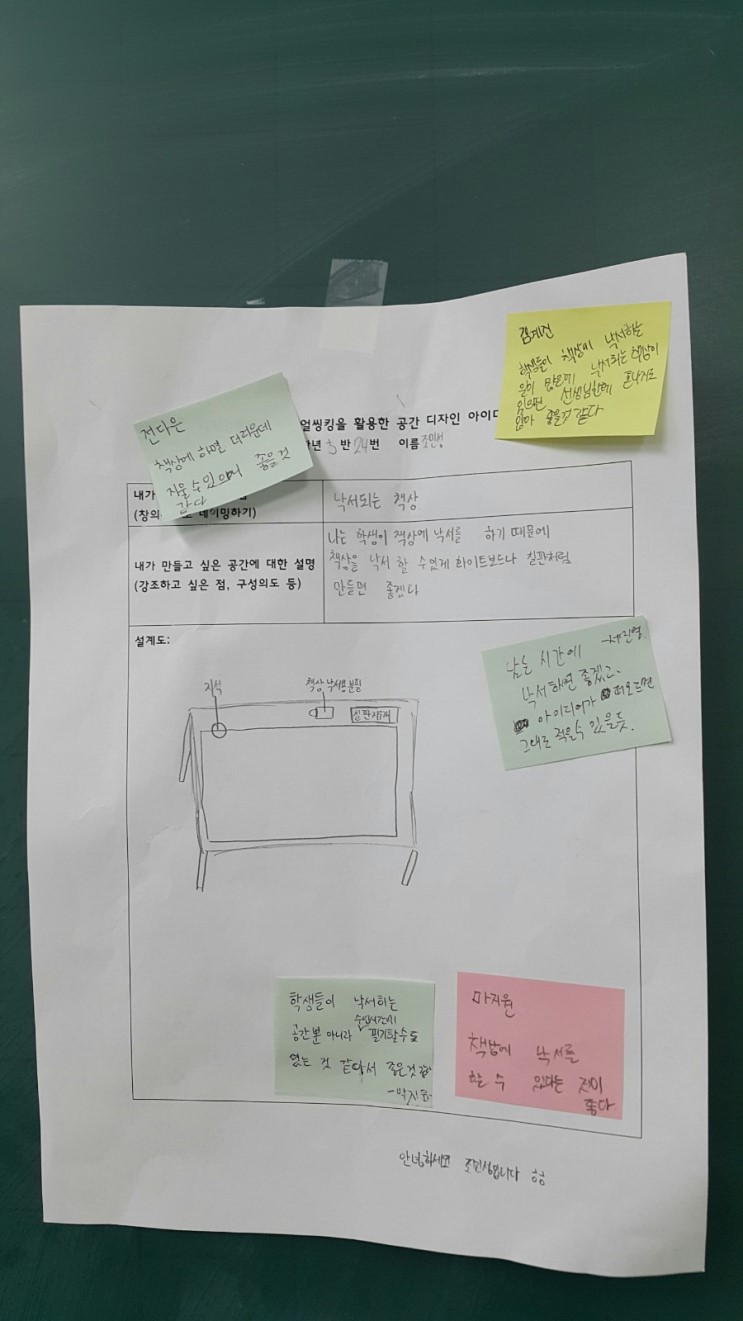 김계현
학생들이 책상에 낙서하는
일이 많은데 낙서되는 책상이
있으면 선생님한테 혼나지도
않아 좋을것 같다
전다은
책상에 하면 더러운데
지울 수 있으며 좋을 것
같다
얼씽킹을 활용한 공간 디자인 아이디
학년 3 반 24번 이름 조민성
내가
(창의 네이밍하기)
낙서되는 책상
내가 만들고 싶은 공간에 대한 설명
(강조하고 싶은 점, 구성의도 등)
나는 학생이 책상에 낙서를 하기 때문에
책상을 낙서 할 수 있게 화이트보드나 칠판처럼
만들면 좋겠다
설계도:
남는 시간에
낙서하면 좋겠고
아이디어가 떠오르면
그대로 적을수 있을듯.
자석
책상 낙서용 분필
칠판지우개
학생들이 낙서하는
공간뿐 아니라 수업시간에 필기할수도
있는 것 같다서 좋은것 같
마지원
책상에 낙서를
할 수 있다는 점이
좋다
안녕하세요 조민성입니다 ㅎㅎ